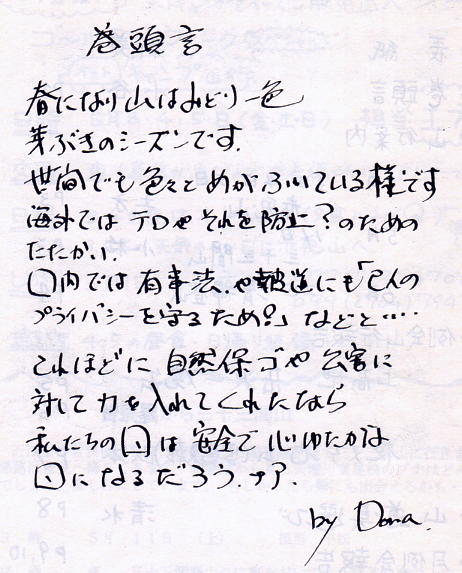 巻頭言
春になり山はみどり一色
芽ぶきのシーズンです.
世間でも色々とめがふいている様です
海外ではテロやそれを防止?のための
たたかい.
国内では有事法.や報道にも「個人の
プライバシーを守るため?」などと….
これほどに自然保ゴや公害に
対して力を入れてくれたなら
私たちの国は安全で心ゆたかな
国になるだろうナア.
by Dona.